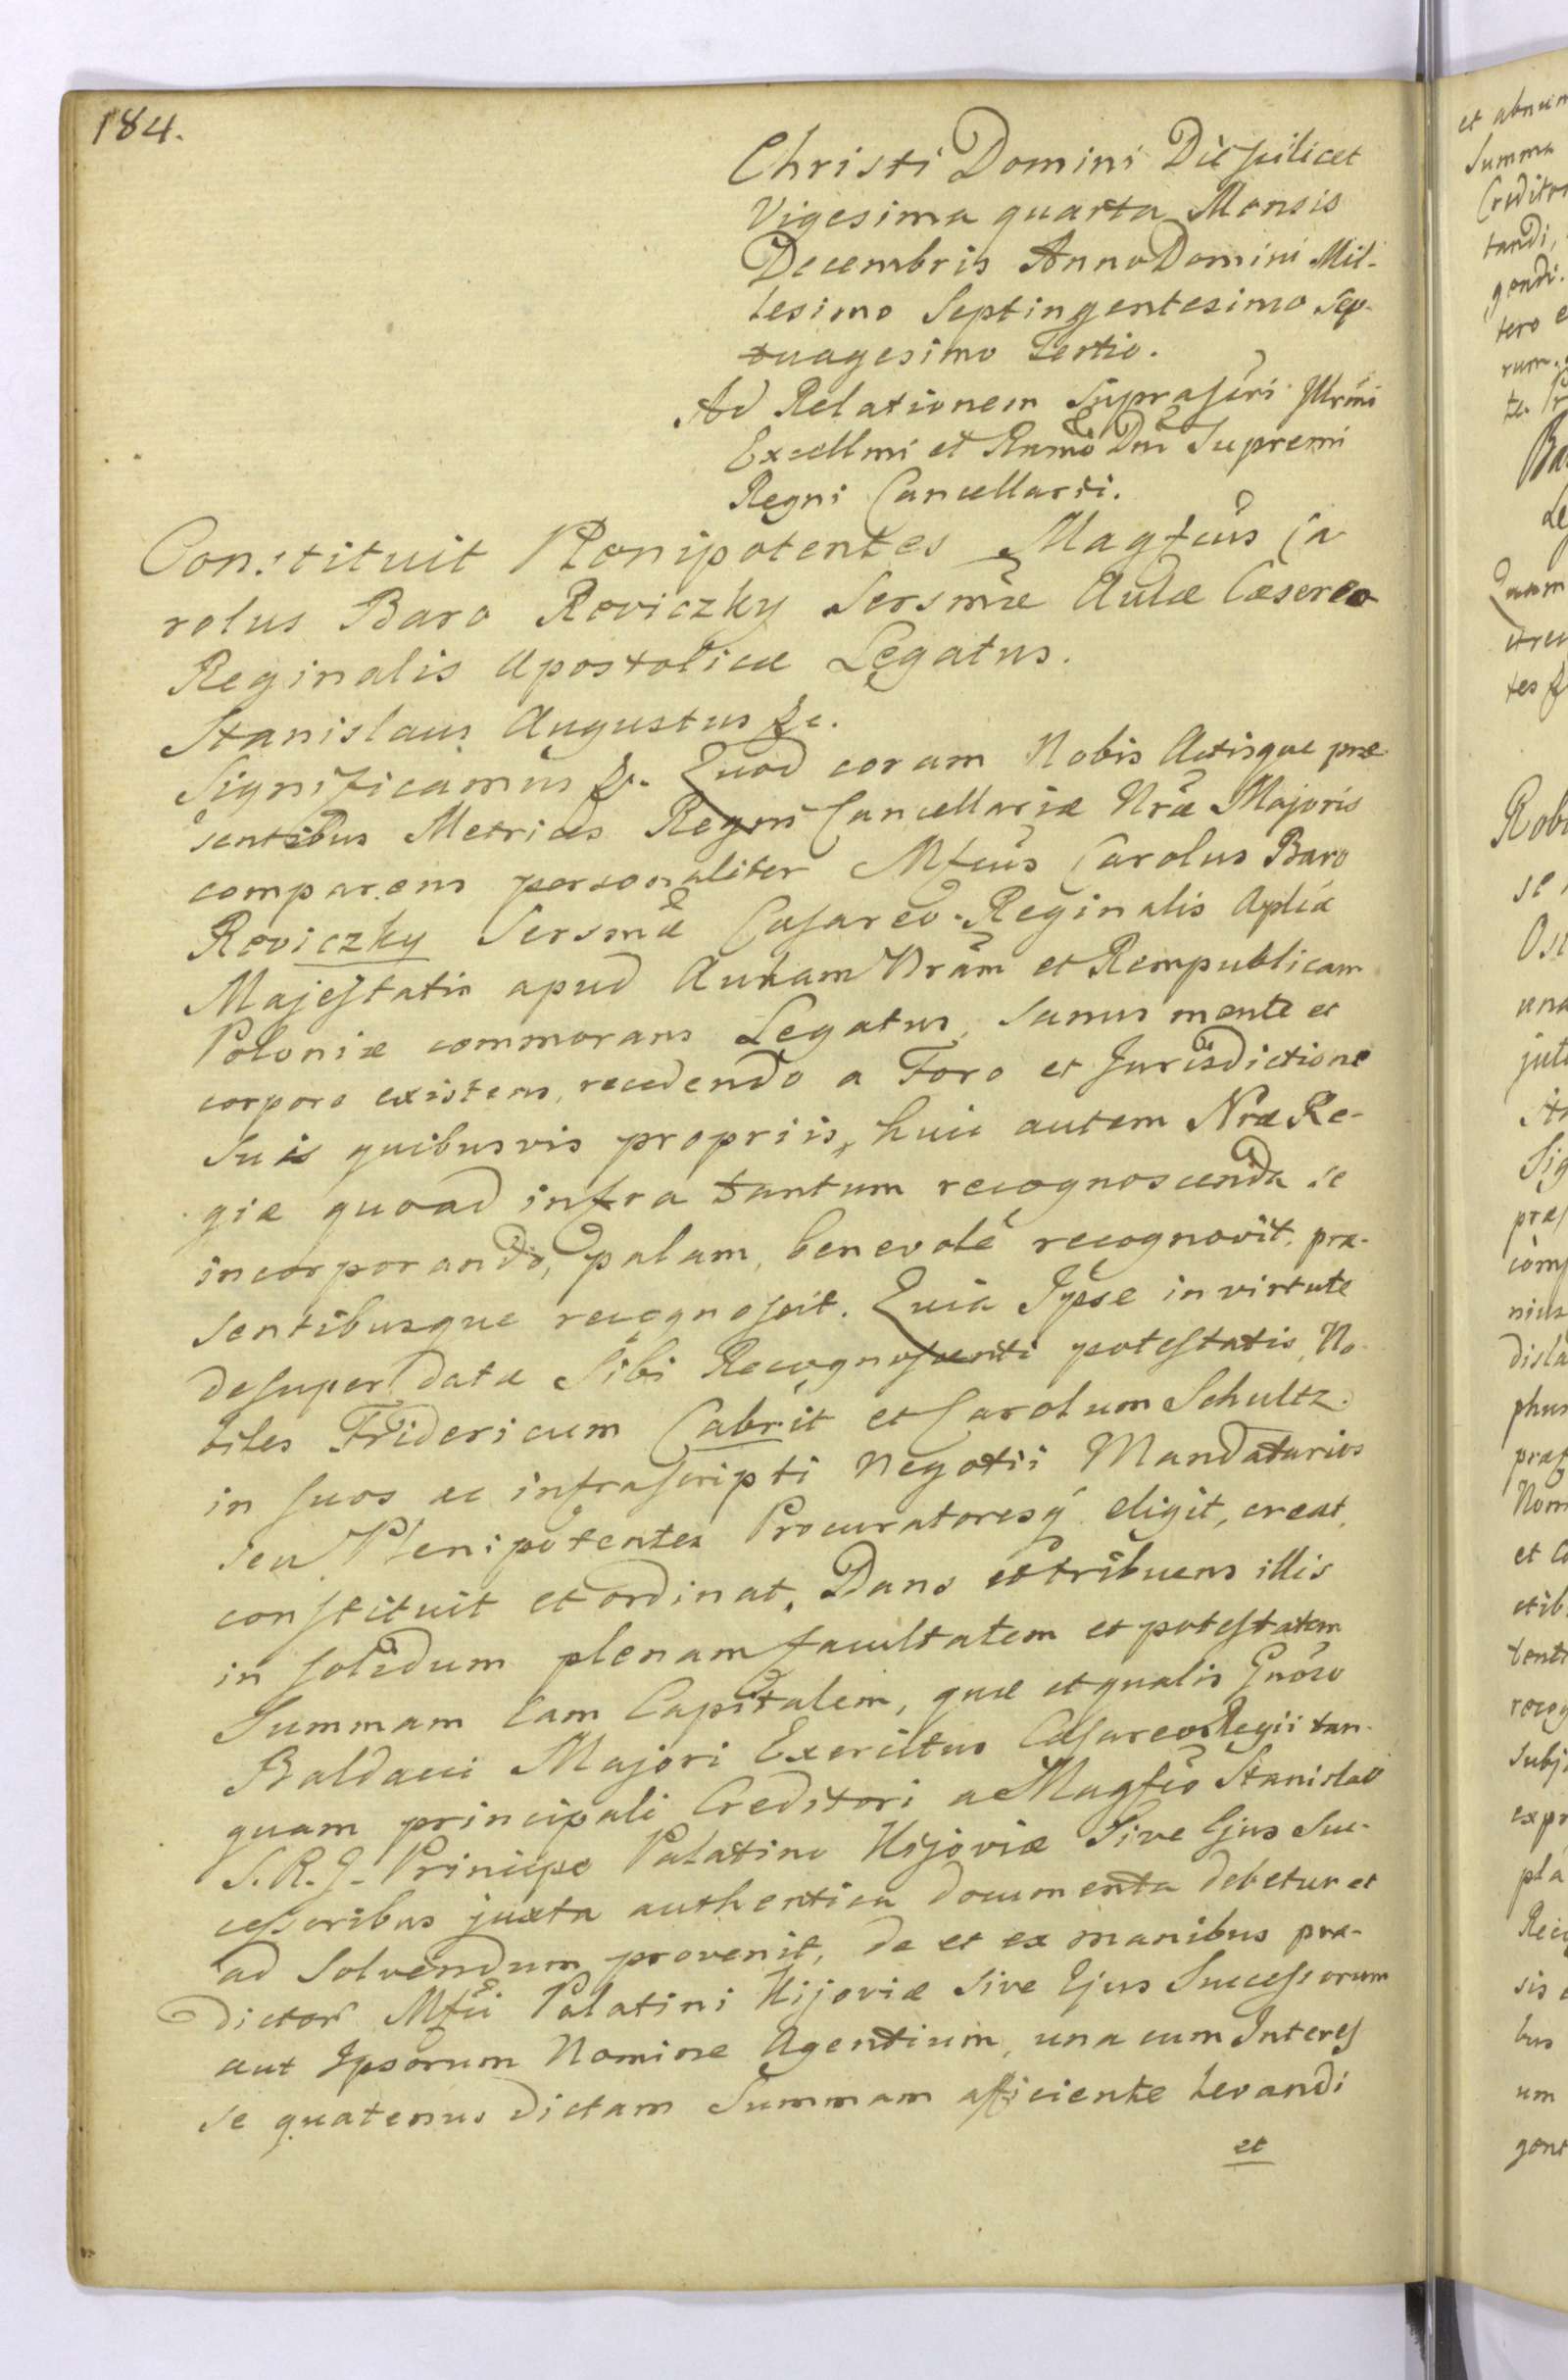 184.
Christi Domini Die scilicet
Vigesima quarta Mensis
Decembris Anno Domini Mil-
lesimo Septingentesimo Sep-
tuagesimo tertio.
Ad Relationem Suprascri Illrmi
Excellmi et Rnmi Dni Supremi
Regni Cancellarii.
Constituit Plenipotentes Magfcus Ca-
rolus Baro Reviczky Sersmæ Aulæ Cæsereo
Reginalis Apostolicæ Legatus.
Stanislaus Augustus &c.
Significamus &c. Quod coram Nobis Actisque præ-
sentibus Metrices Regni Cancellariæ Nræ Majoris
comparens personaliter Mfcus Carolus Baro
Reviczky Sersmæ Cæsareo-Reginalis Aplicæ
Majestatis apud Aulam Nram et Rempublicam
Poloniæ commorans Legatus, sanus mente et
corpore existens, recedendo a Foro et Jurisdictione
suis quibusvis propriis, huic autem Nræ Re-
giæ quoad infra tantum recognoscenda se
incorporando, palam, benevolé recognovit, præ-
sentibusque recognoscit. Quia Ipse in virtute
desuper datæ Sibi Recognoscenti potestatis, No-
biles Fridericum Cabrit et Carolum Schultz
in suos ac infrascripti Negotii Mandatarios
seu Plenipotentes Procuratoresq́ eligit, creat,
constituit et ordinat, Dans et tribuens illis
in solidum plenam facultatem et potestatem
Summam Eam Capitalem, quæ et qualis Gnoso
Baldacci Majori Exercitus Cæsareo Regii tan-
quam principali Creditori a Magfco Stanislao
S. R. J. Principe Palatino Kijoviæ Sive Ejus Suc-
cessoribus juxta authentica documenta debetur et
ad Solvendum provenit, de et ex manibus præ-
dictor Mfci Palatini Kijoviæ sive Ejus Successorum
aut Ipsorum Nomine Agentium, una cum Interes
se quatenus dictam Summam afficiente levandi
et